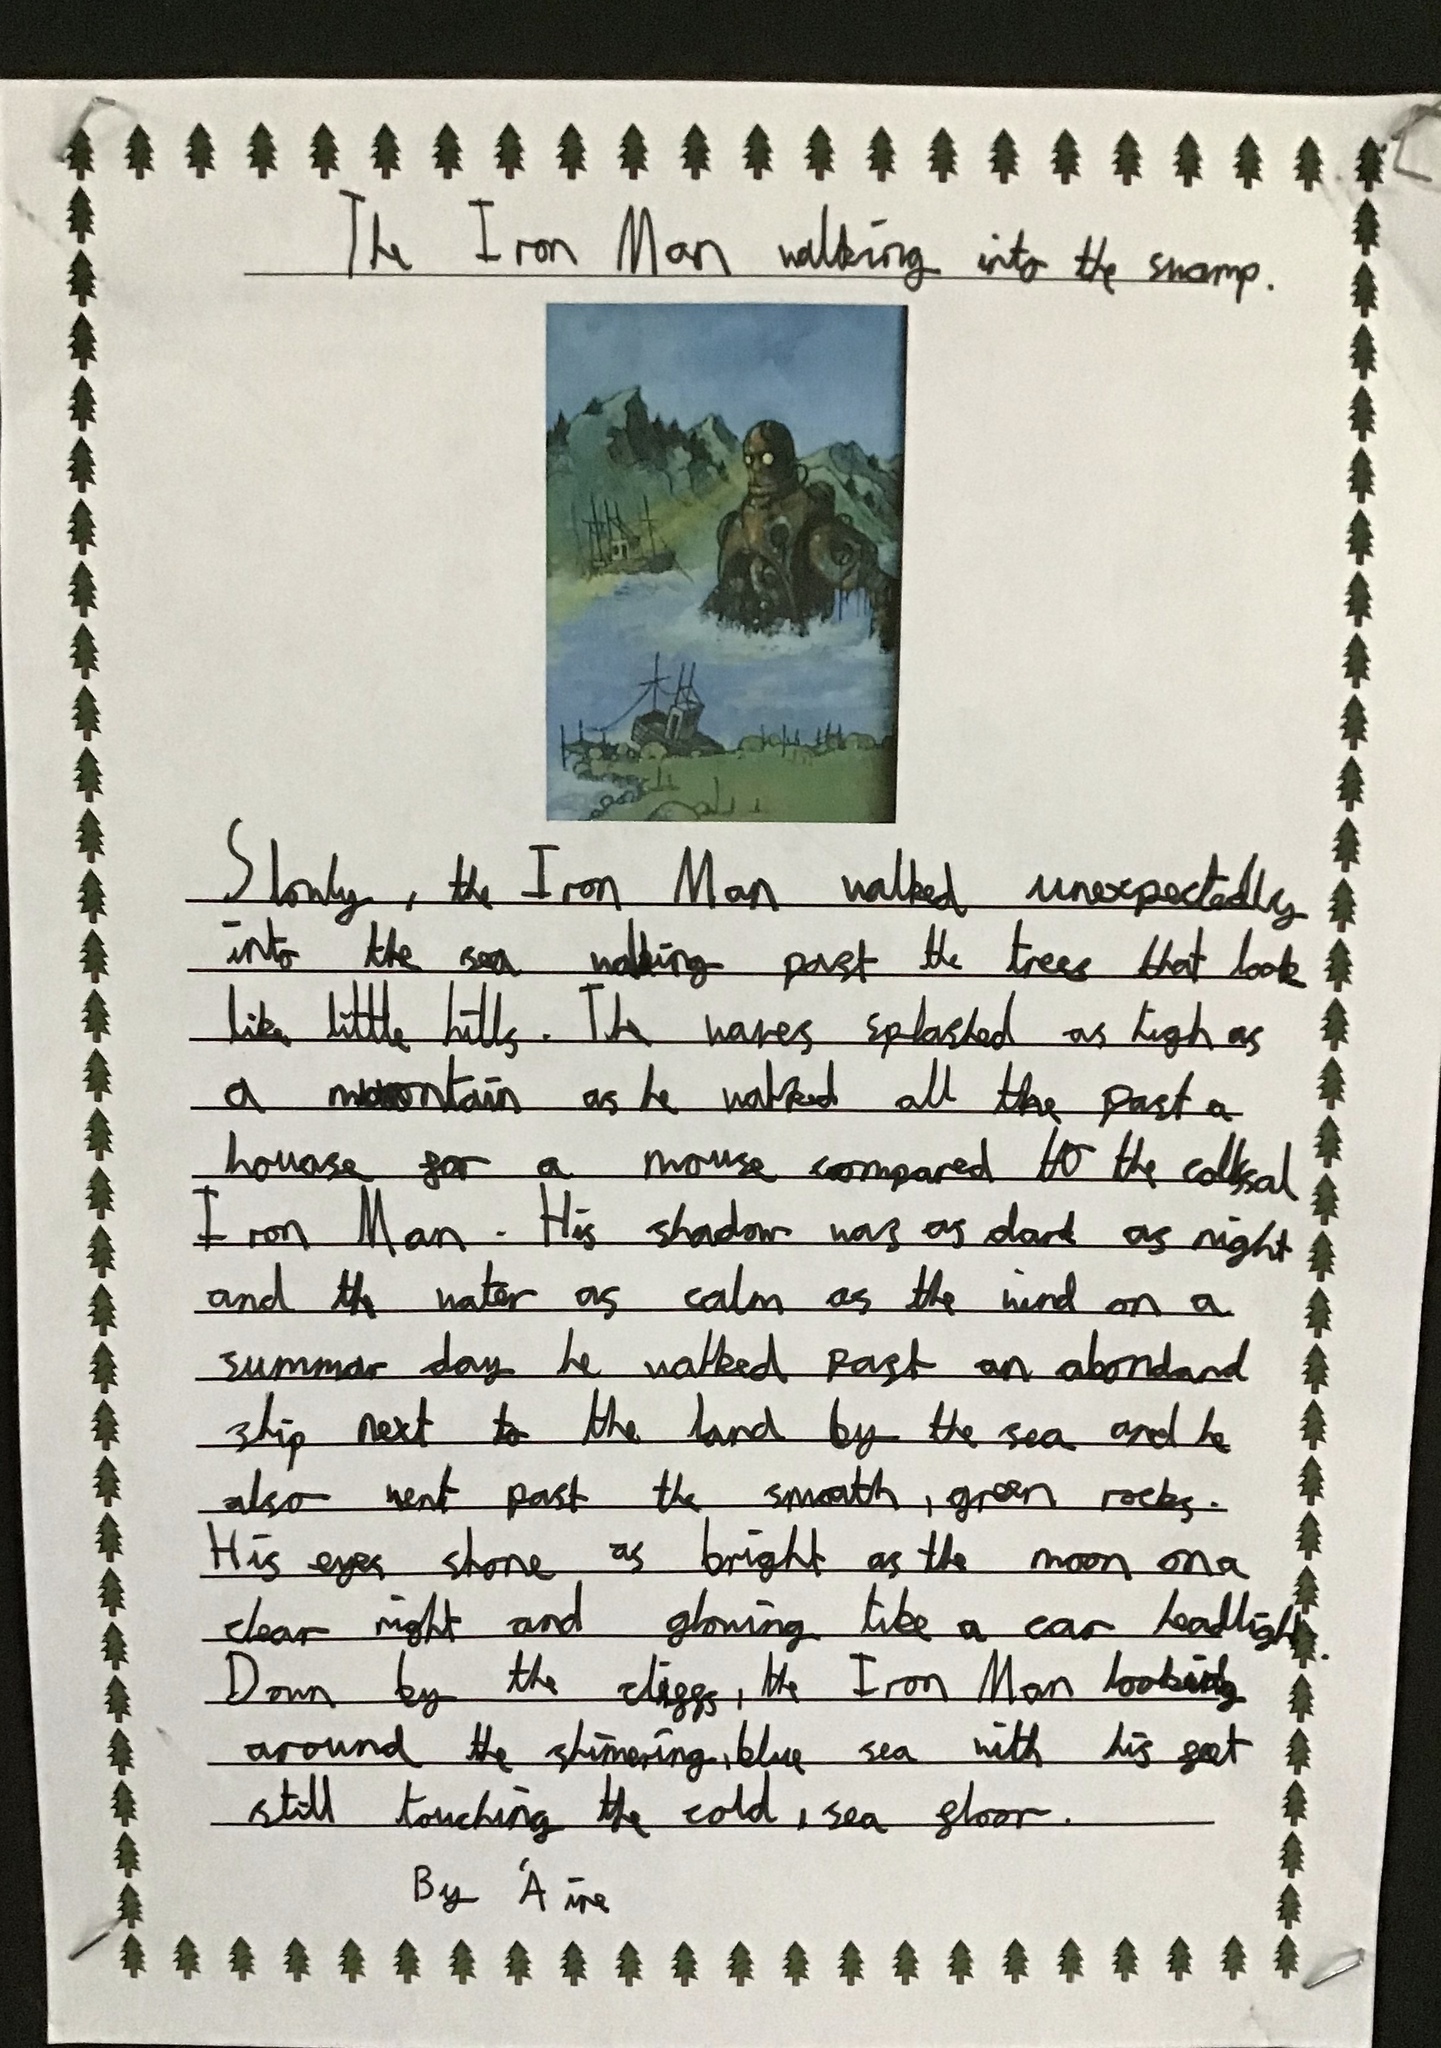 The Iron Man walking into the swamp.
Slowly, the Iron Man walked unexpectedly
into the sea walking past the trees that look
like little hills. The waves splashed as high as
a mountain as he walked all the past a
houose for a mouse compared to the collssal
Iron Man. His shadow was as dark as night
and the water as calm as the wind on a
summar day he walked past an abondand
ship next to the land by the sea and he
also went past the smooth, green rocks.
His eyes shone as bright as the moon on a
clear night and glowing like a car headlight.
Down by the cliffs, the Iron Man looking
around the shimering, blue sea with his feet
still touching the cold, sea floor.
By Áine